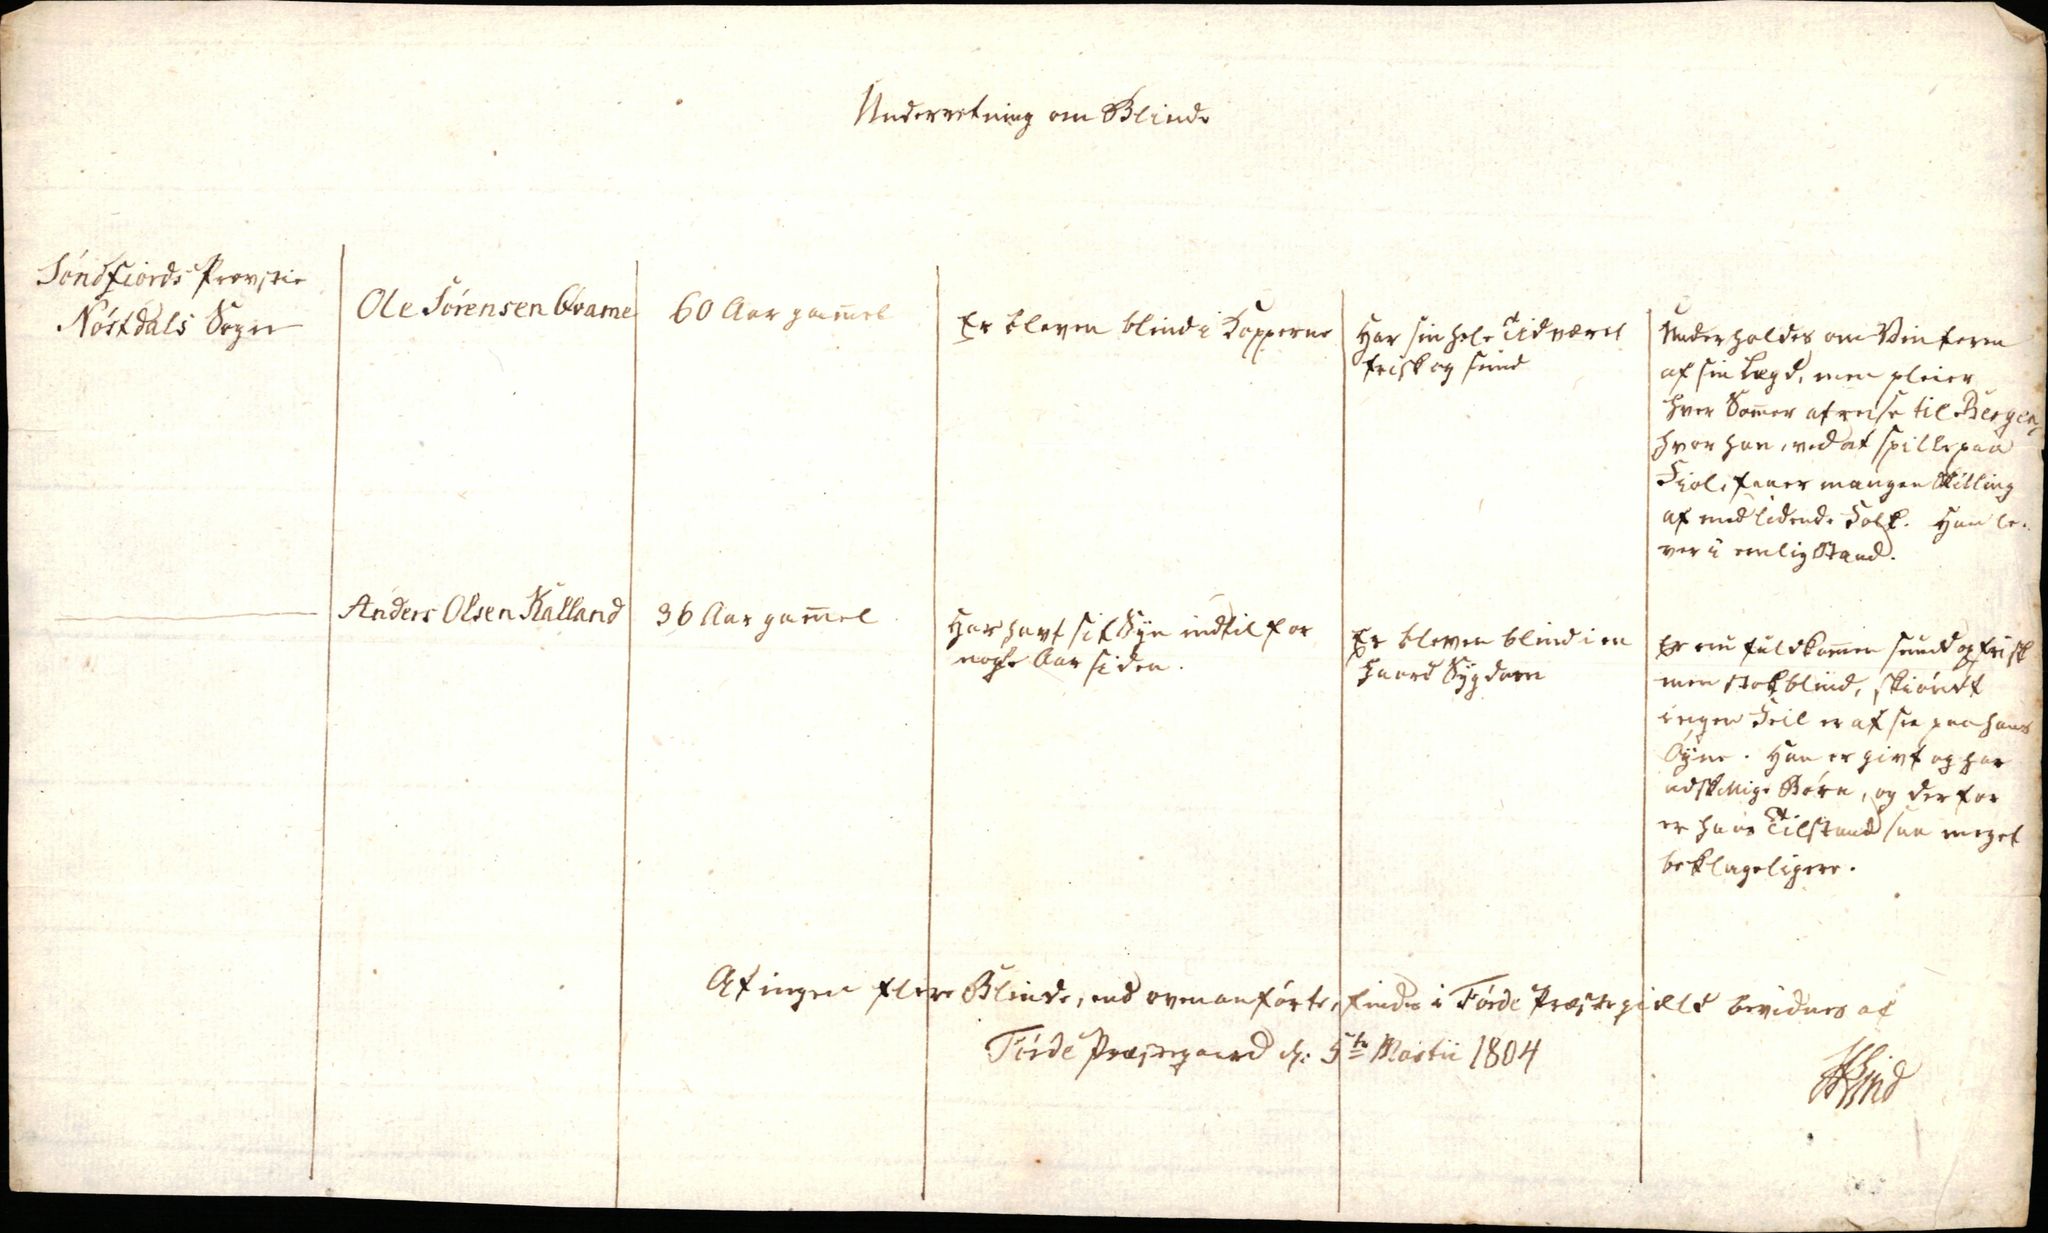 Underretning om Blinde
Søndfiords Provstie
Nøstdals Sogn
Ole Sørensen Qvame
60 Aar gam̅el
Er bleven blind i Kopperne
Har sin hele Tid været
frisk og sund
Underholdes om Vinteren
af sin Lægd, men pleier
hver Som̅er at reise til Bergen,
hvor han, ved at spille paa
Fiol, faaer mangen Skilling
af medlidende Folk. Han le-
ver i enlig Stand.
Anders Olsen Kalland
36 Aar gam̅el
Har havt sit Syn indtil for
nogle Aar siden.
Er bleven blind i en
haard Sygdom
Er nu fuldkom̅en sund og frisk
men stokblind, skiøndt
ingen Feil er at see paa hans
Øyne. Han er givt og har
adskillige Børn, og derfor
er hans Tilstand saa meget
beklageligere.
At ingen flere Blinde, end ovenanførte, findes i Førde Præstegield bevidnes af
Førde Præstegaard d: 5te Martii 1804